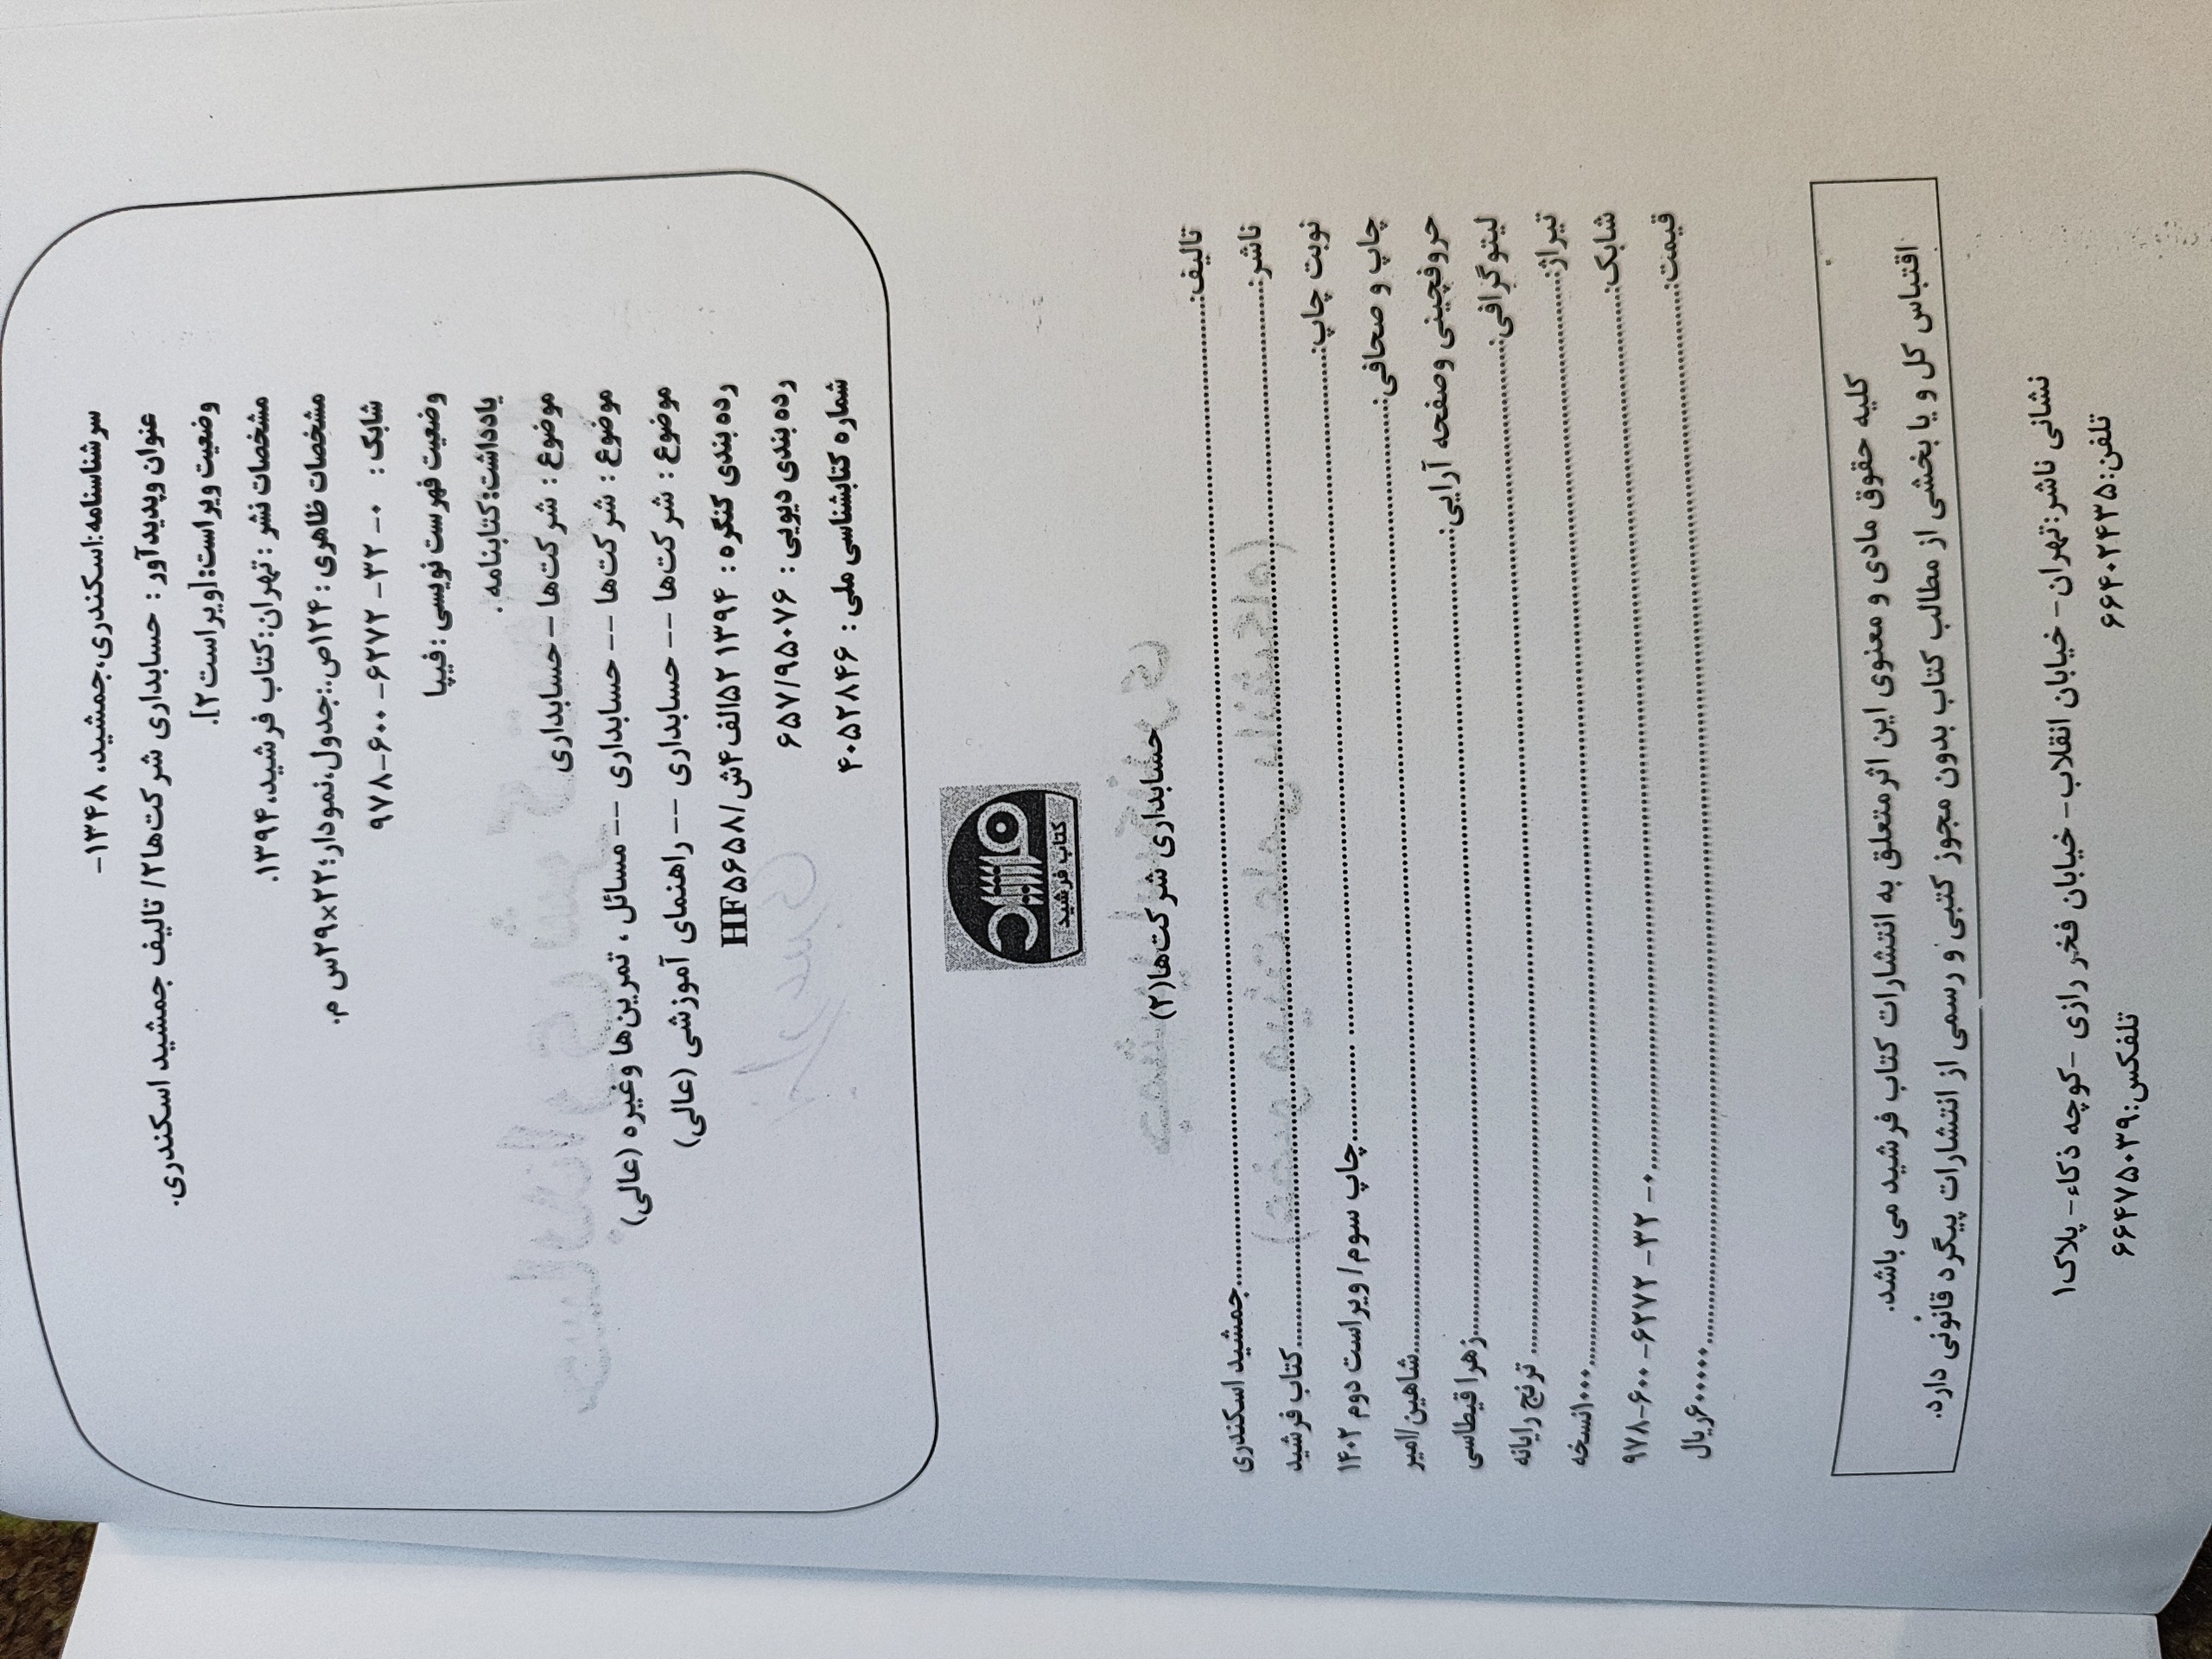 سرشناسنامه:اسکندری،جمشید، ۱۳۴۸-
عنوان وپدیدآور : حسابداری شرکت‌ها۲/ تالیف جمشید اسکندری.
وضعیت ویراست:[ویراست۲].
مشخصات نشر : تهران:کتاب فرشید،۱۳۹۴.
مشخصات ظاهری : ۱۲۴ص.:جدول،نمودار؛۲۲×۲۹س م.
شابک : ۹۷۸-۶۰۰ -۶۲۷۲ -۳۲ -۰
وضعیت فهرست نویسی : فیپا
یادداشت:کتابنامه .
موضوع : شرکت‌ها – حسابداری
موضوع : شرکت‌ها -- حسابداری -- مسائل ، تمرین‌ها وغیره (عالی)
موضوع : شرکت‌ها -- حسابداری -- راهنمای آموزشی (عالی)
رده بندی کنگره : ۱۳۹۴ ۵۲الف۴ش/HF۵۶۵۸
رده بندی دیویی : ۶۵۷/۹۵۰۷۶
شماره کتابشناسی ملی : ۴۰۵۲۸۴۶
کتاب فرشید
حسابداری شرکت‌ها(۲)
تالیف:..........جمشید اسکندری
ناشر:..........کتاب فرشید
نوبت چاپ:..........چاپ سوم/ ویراست دوم ۱۴۰۲
چاپ و صحافی:..........شاهین/امیر
حروفچینی وصفحه آرایی:..........زهرا قیطاسی
لیتوگرافی:.......... ترنج رایانه
تیراژ:..........۱۰۰۰نسخه
شابک:..........۹۷۸-۶۰۰ -۶۲۷۲ -۳۲ -۰
قیمت:..........۶۰۰۰۰۰ریال
کلیه حقوق مادی و معنوی این اثر متعلق به انتشارات کتاب فرشید می باشد.
اقتباس کل و یا بخشی از مطالب کتاب بدون مجوز کتبی و رسمی از انتشارات پیگرد قانونی دارد.
نشانی ناشر:تهران- خیابان انقلاب- خیابان فخر رازی -کوچه ذکاء- پلاک۱
تلفن:۶۶۴۰۲۴۳۵ تلفکس:۶۶۴۷۵۰۳۹